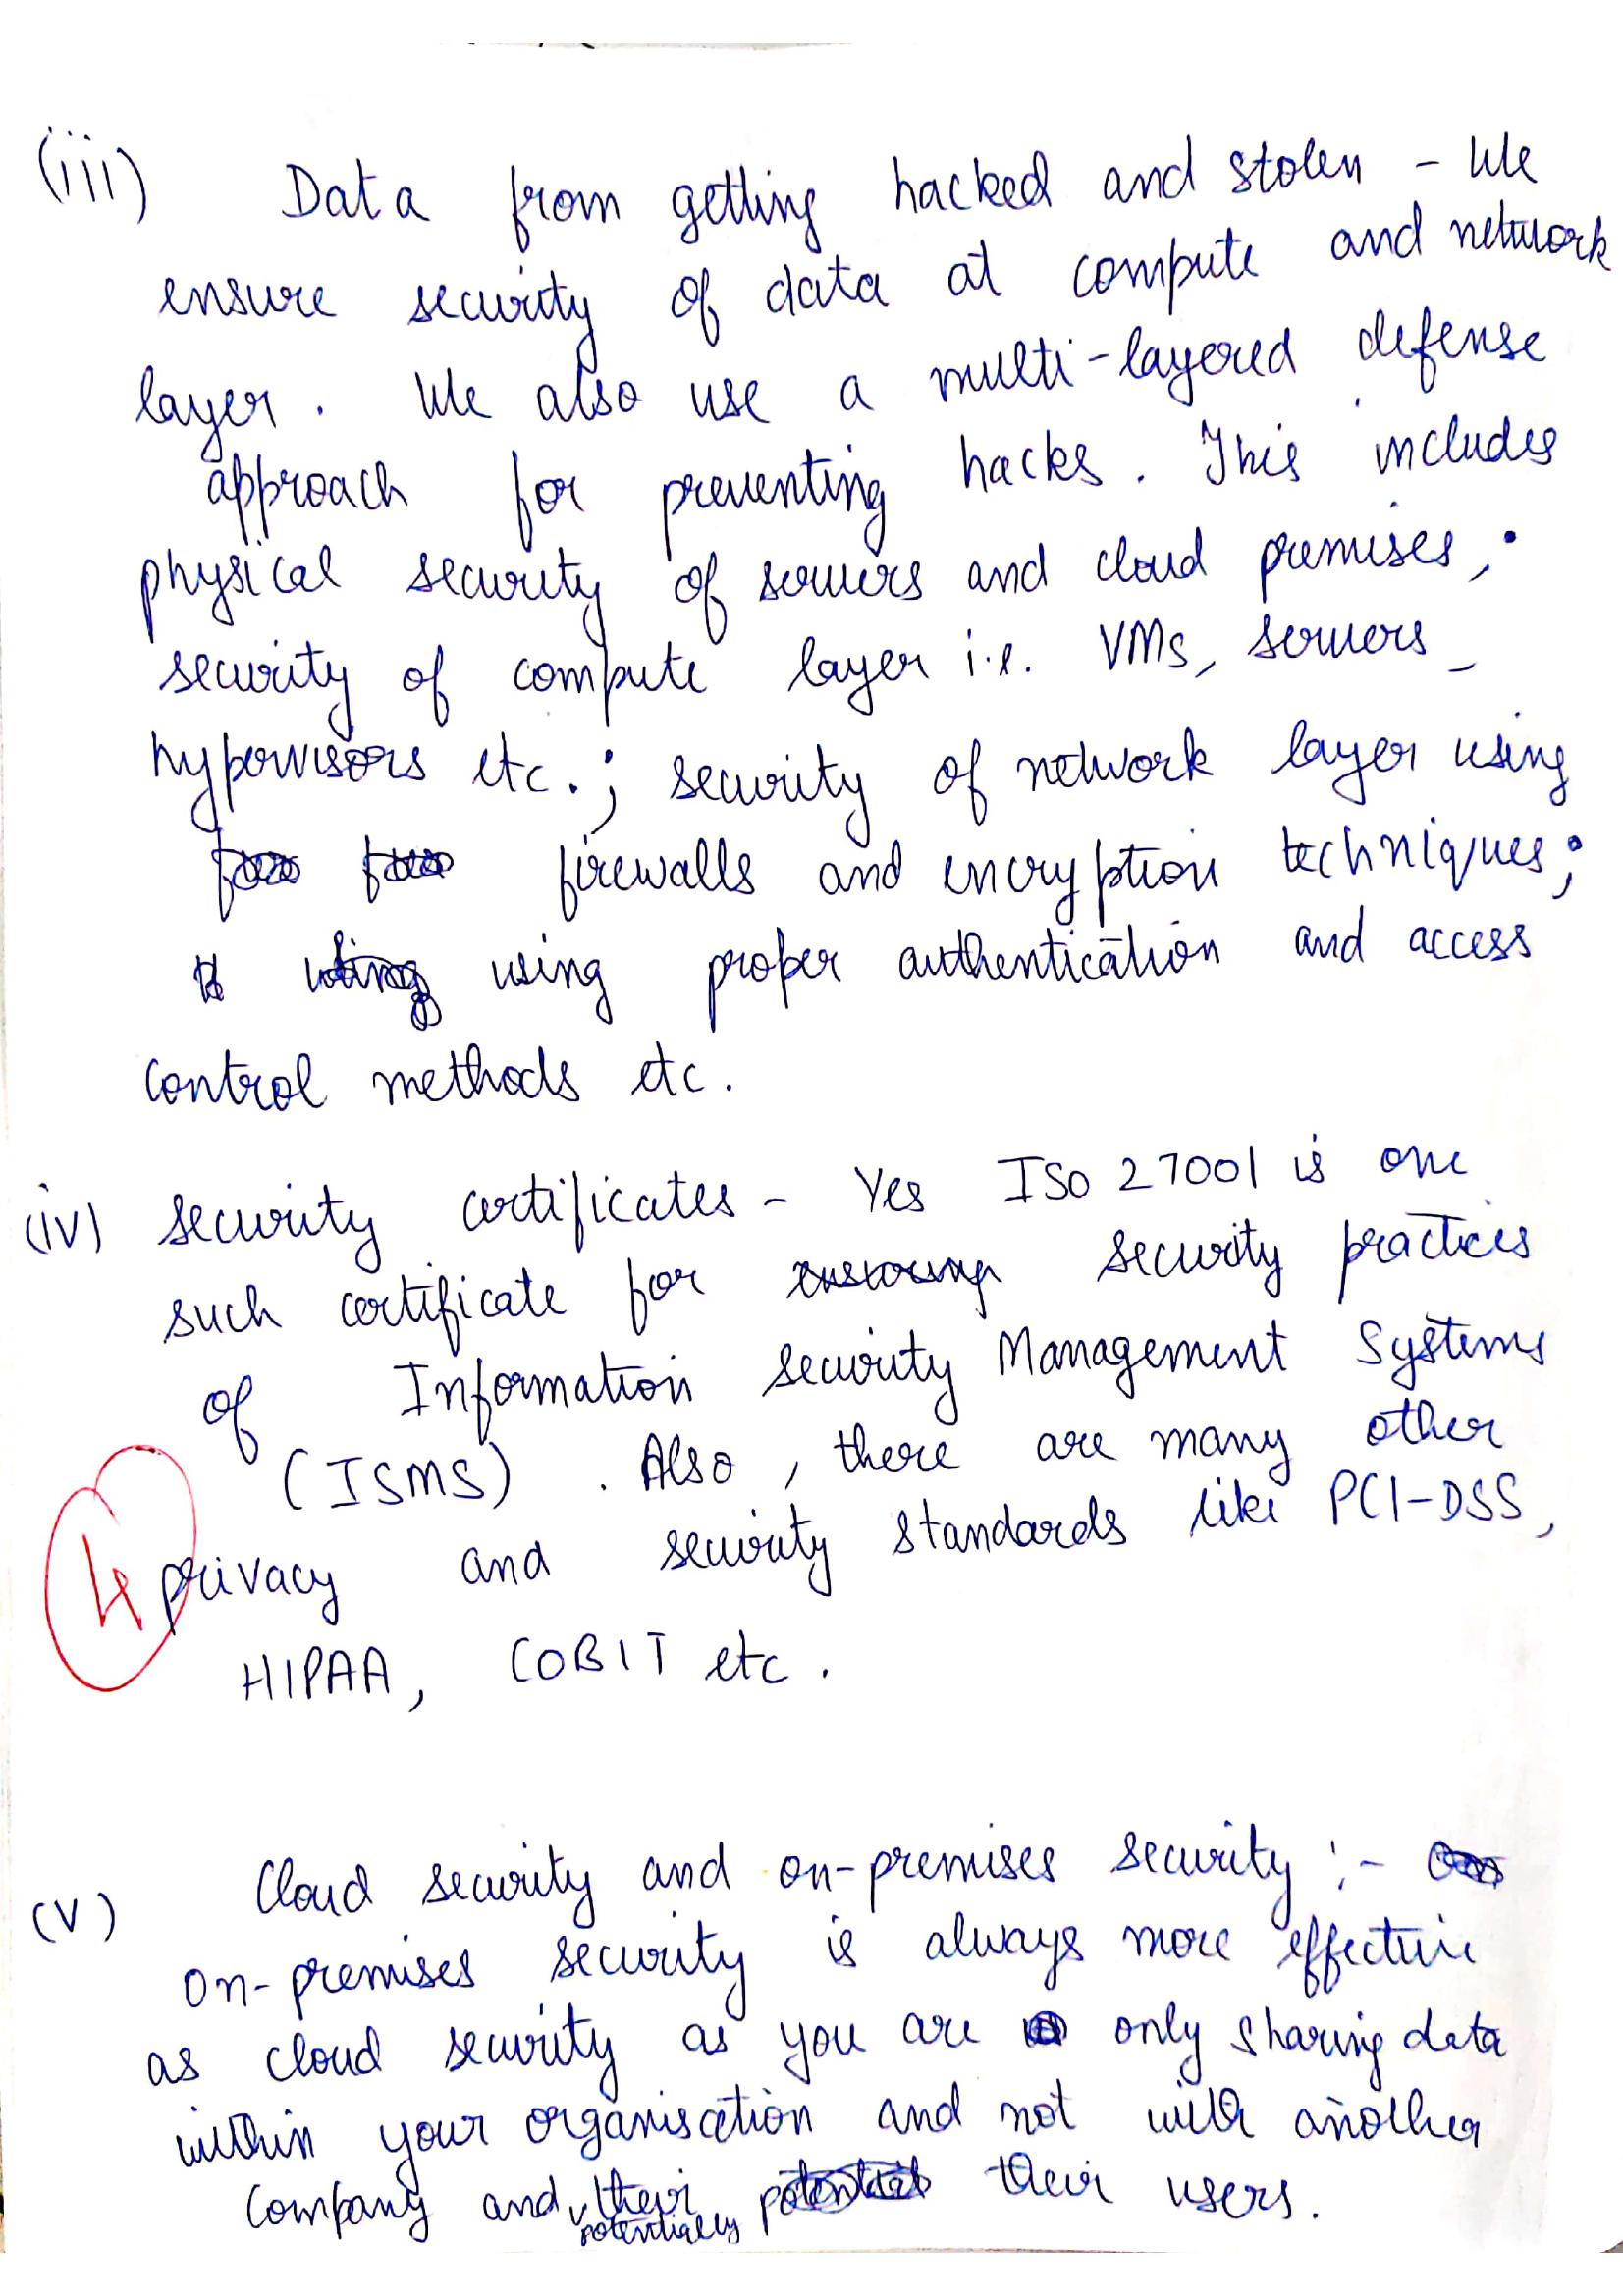 (iii) Data from getting hacked and stolen - We
ensure security of data at compute and network
layer. We also use a multi-layered defense
approach for preventing hacks. This includes
physical security of servers and cloud premises;
security of compute layer i.e. VMs, servers,
hypervisors etc.; security of network layer using
firewalls and encryption techniques;
using proper authentication and access
control methods etc.
(iv) security certificates - Yes ISO 27001 is one
such certificate for ensuring security practices
of Information Security Management Systems
(ISMS). Also, there are many other
privacy and security standards like PCI-DSS,
4
HIPAA, COBIT etc.
(v) Cloud security and on-premises security :-
on-premises security is always more effective
as cloud security as you are only sharing data
within your organisation and not with another
company and potentially their their users.